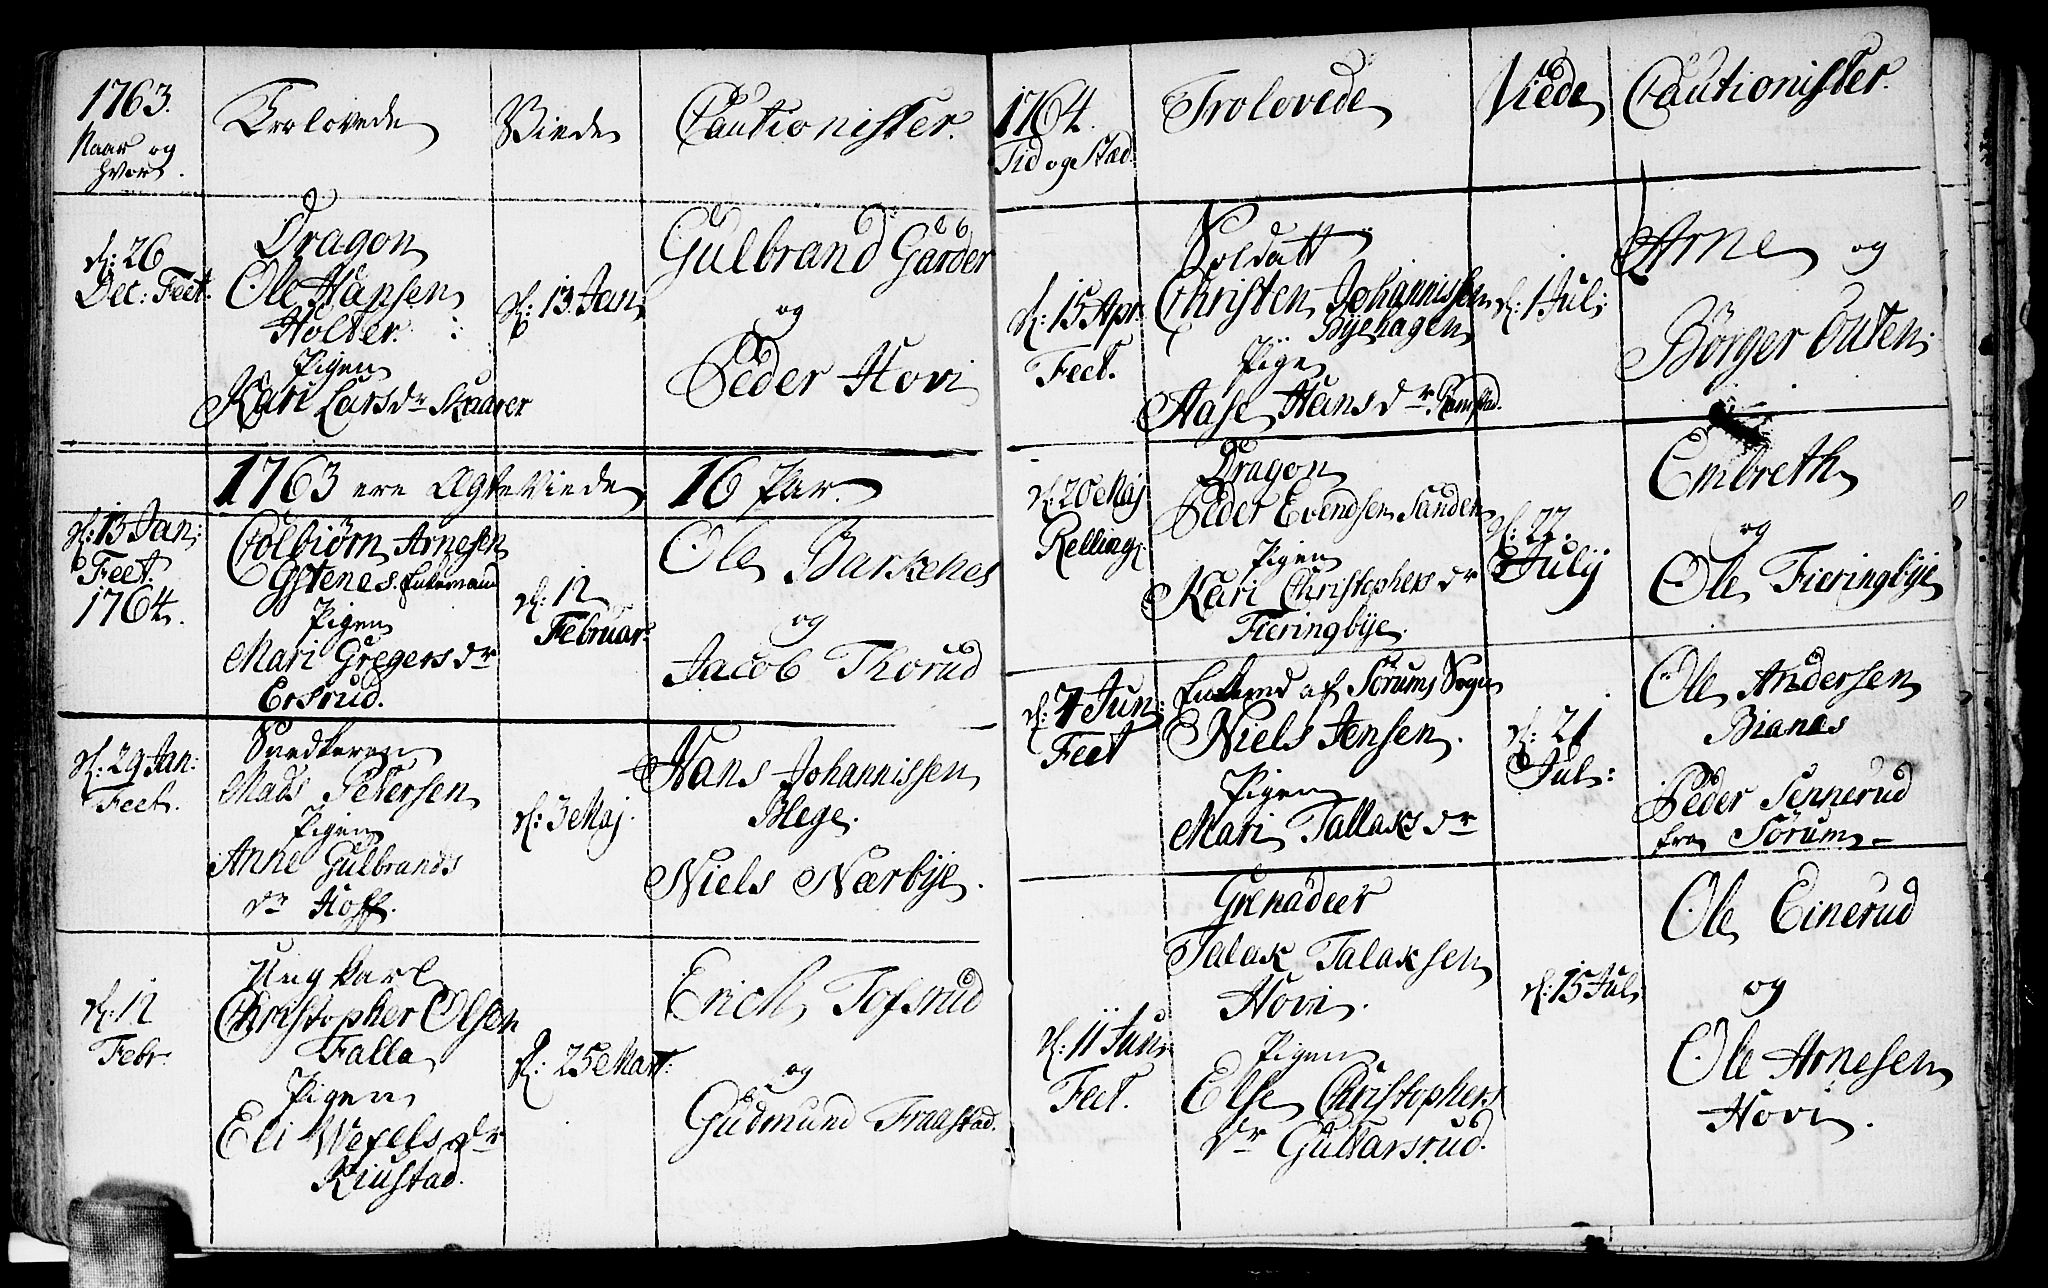 1763.
Naar og
hvor.
Trolovede
Viede
Cautionister.
d: 26
Dec: Feet.
Dragon
Ole Hansen
Holter.
Pigen
Kari Larsdr Skaarer
d: 13 Jan:
Gulbrand Garder
og
Peder Hovi
1763 ere Ægte Viede 16 Par.
d: 13 Jan:
Feet.
1764.
Colbiørn Arnesen
Ystenes. Enkemand
Pigen
Mari Gregersdr
Ersrud.
d: 12
Februar:
Ole Barkenes
og
Jacob Thorud
d: 29 Jan:
Feet.
Snedkeren
Mads Petersen
Pigen
Anne Gulbrands
dr Hoff.
d: 3 Maj.
Hans Johannissen
Blege.
Niels Nærbÿe.
d: 12
Febr.
Ung karl
Christopher Olsen
Falla
Pigen
Eli Wexelsdr
Kiustad.
d: 25 Mart:
Erich Tofsrud
og
Gudmund Fragstad.
1764.
Tid og Stæd.
Trolovede
Viede
Cautionister.
d: 15 Apr.
Feet.
Soldatt
Christen Johannissen
Bÿehagen
Pige
Aase Hansdr Ramstad.
d: 1 Jul:
Arne og
Børger Outen:
d: 20 Maj
Relling:
Dragon
Peder Evendsen Sanden
Pigen
Kari Christophersdr
Fieringbÿe.
d: 22.
Julÿ
Embreth
og
Ole Fieringbÿe
d: 7 Jun:
Feet
Enkemd af Sørums Sogn
Niels Jensen.
Pigen
Mari Tallaksdr
d: 21
Jul:
Ole Andersen
Bianes
Peder Sennerud
fra Sørum
d: 11 Jun:
Feet.
Grenadeer
Talak Talaksen
Hovi.
Pigen
Else Christophers
dr Guttarsrud.
d: 15 Jul:
Ole Einerud
og
Ole Arnesen
Hovi.